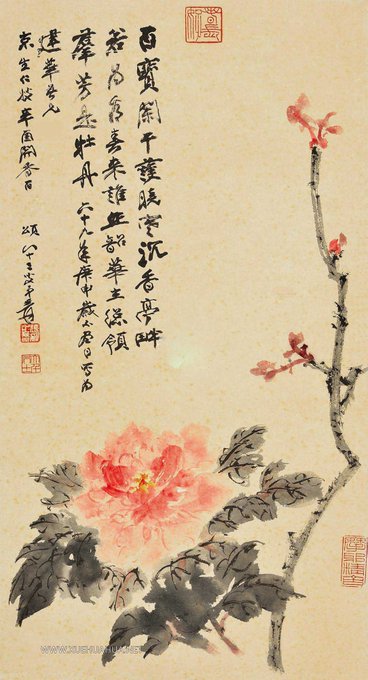 百寶闌干護曉寒沉香亭畔
若為看春來誰作韶華主總領
羣芳是牡丹 六十九年庚申歲日寫為
華吾兄
京生仁嫂辛酉開春日 頌 八十三叟爰
WWW.XUEHUAHUA.NET